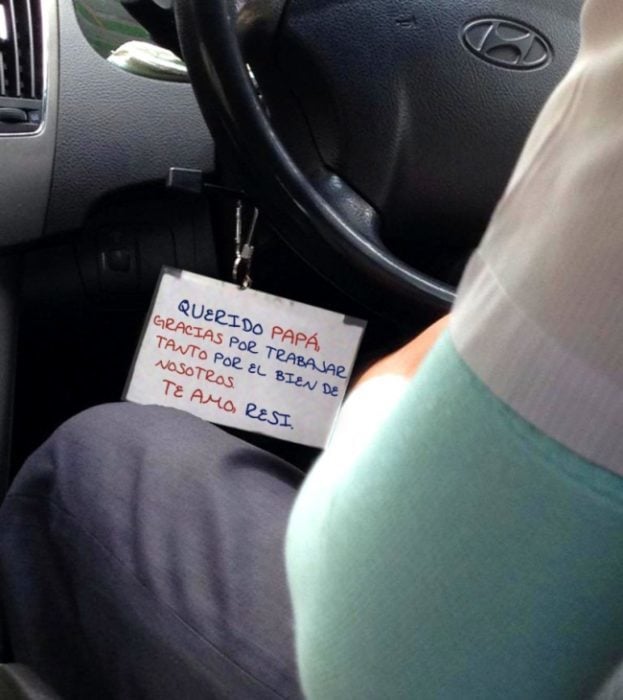 QUERIDO PAPÁ,
GRACIAS POR TRABAJAR
TANTO POR EL BIEN DE
NOSOTROS.
TE AMO, RESI.